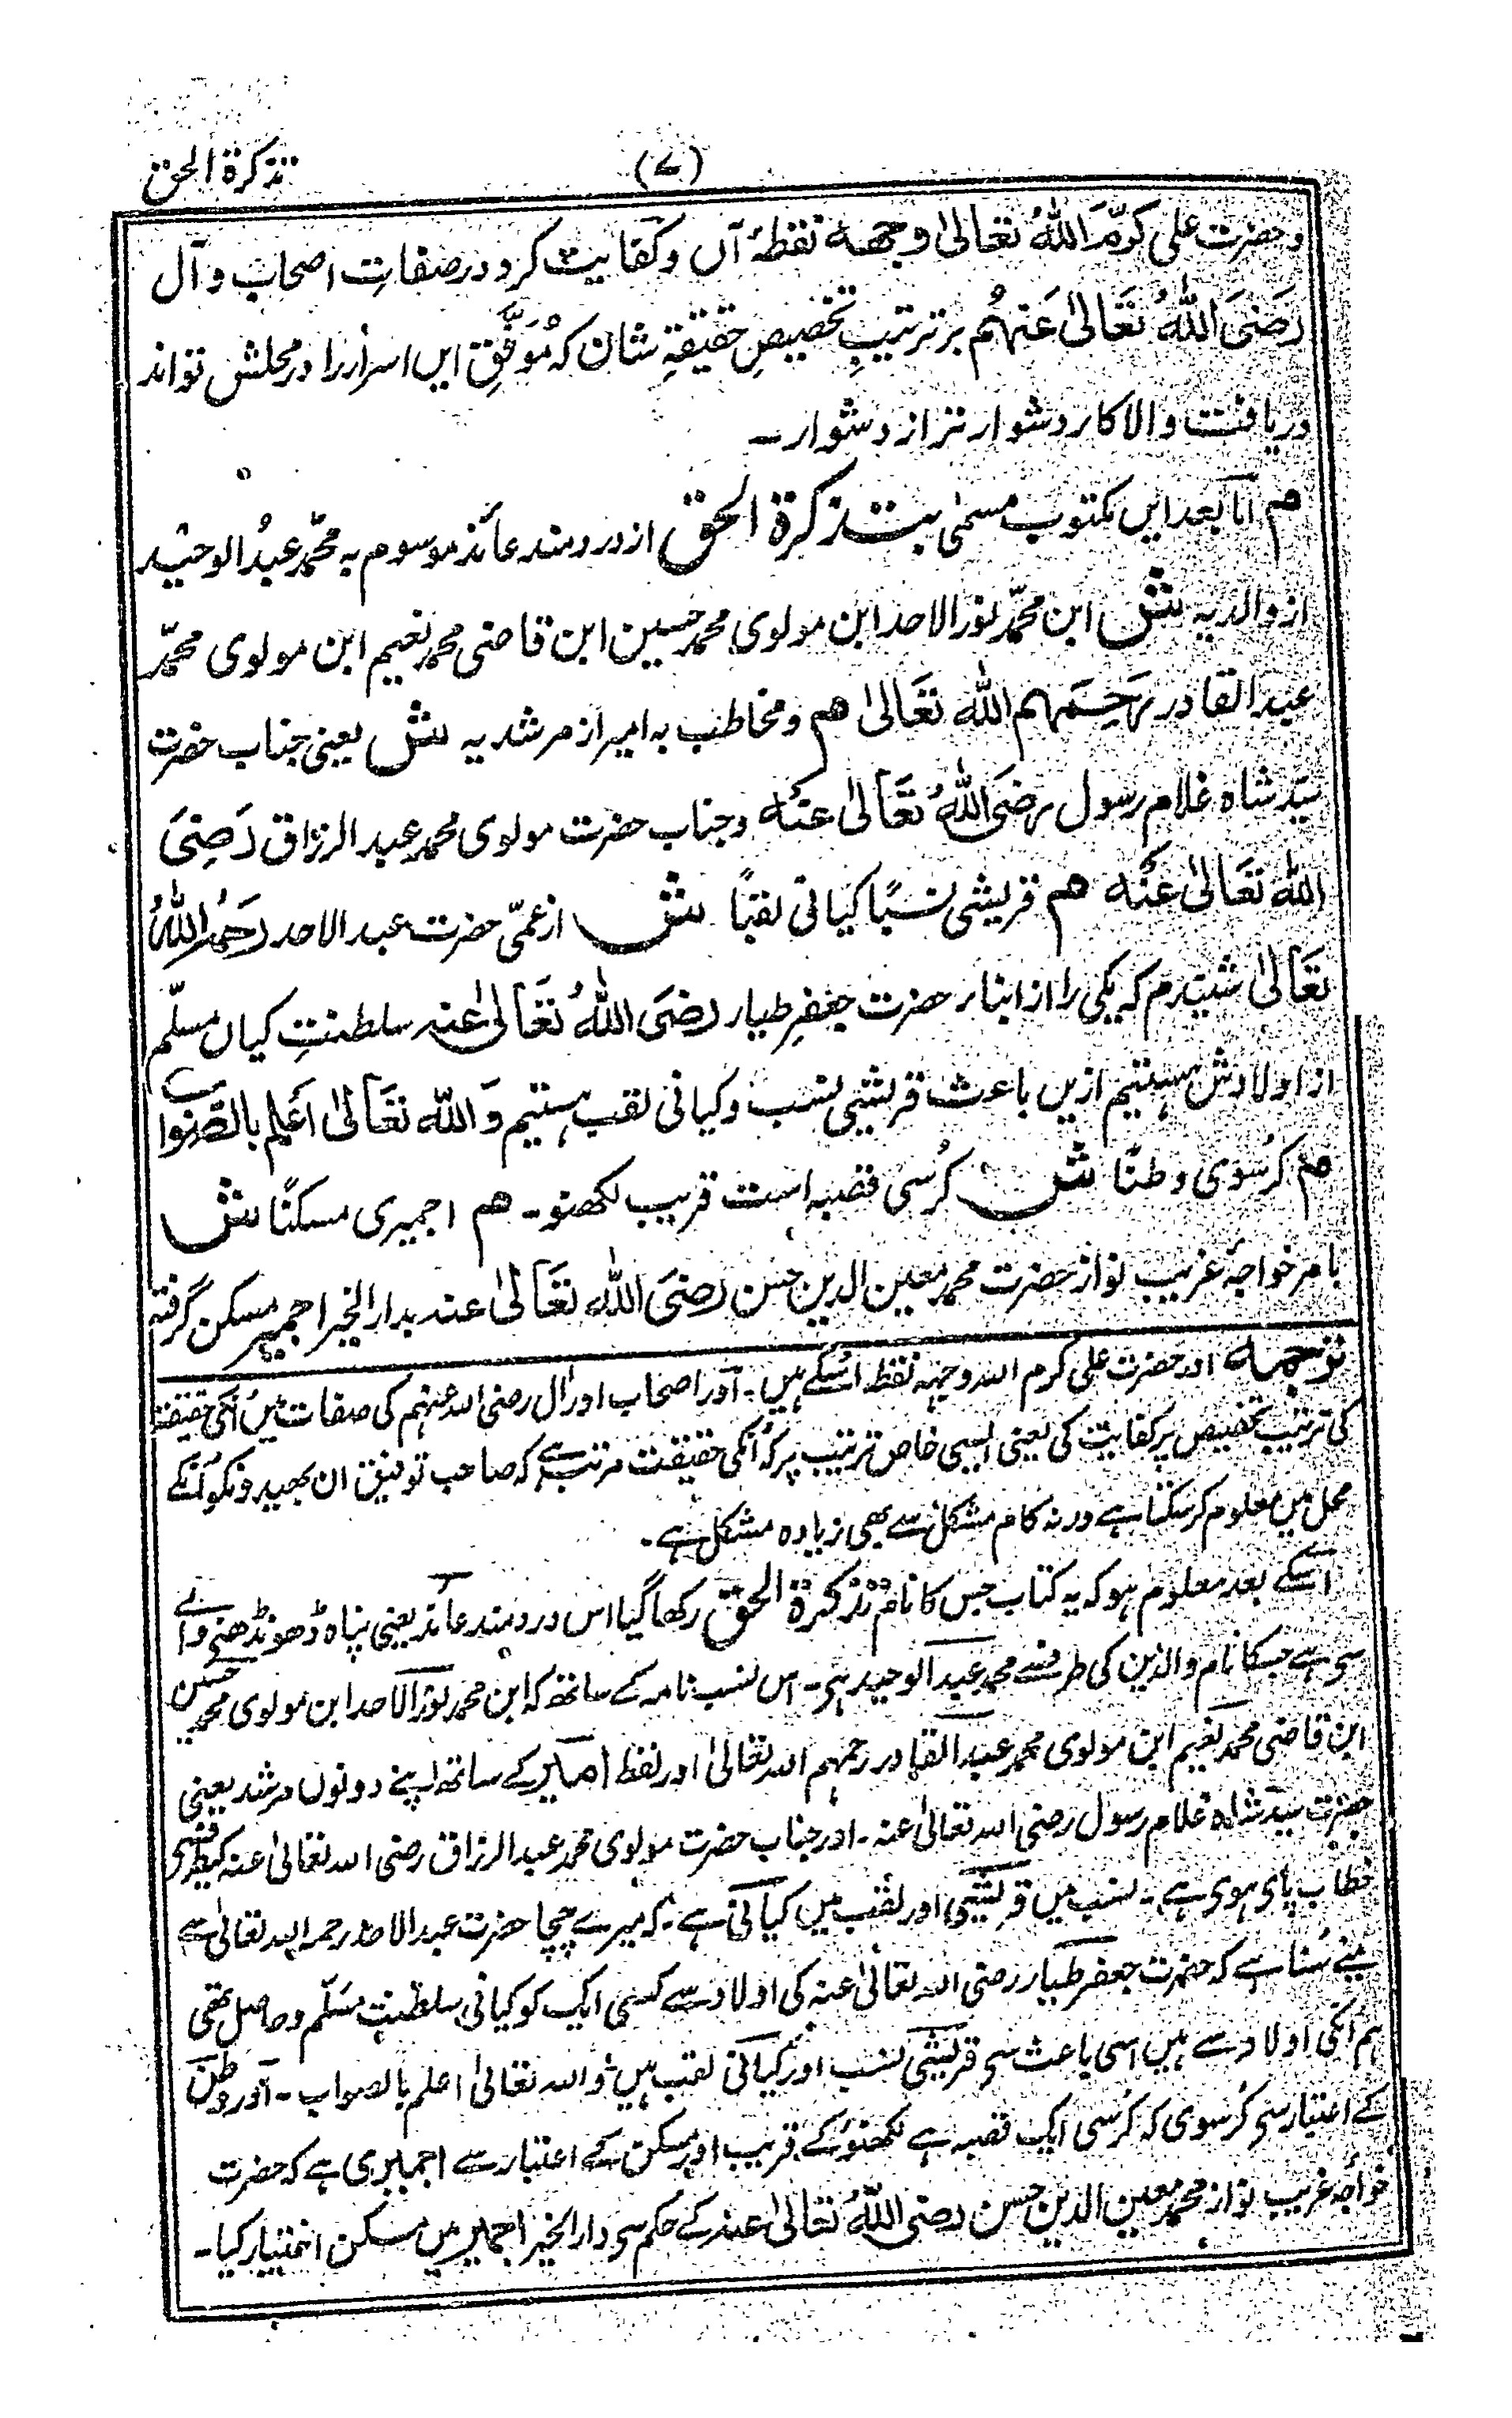 تذکرۃ الحق
(۷)
وحضرت علی کرّمَ اللہُ تعالیٰ وجهه نقطۂ آں وکفایت کرد در صفاتِ اصحاب و آل
رَضیَ اللہُ تَعَالیٰ عَنہُم بر ترتیبِ تخصیصِ حقیقۃِ شان کہ مُوَفَّقِ ایں اسرار را در محلش تواند
دریافت والا کار دشوار تر از دشوار ۔
م امّا بعد ایں مکتوب مسمیٰ بتذکرۃ الحق از دردمند عائذ موسوم بہ محمّد عبدُ الوحید
از والدیہ ش ابن محمّد نور الاحد ابن مولوی محمد حسین ابن قاضی محمد نعیم ابن مولوی محمّد
عبد القادر رَحِمَہم اللہ تَعَالیٰ هم ومخاطب بہ امیر از مرشدیہ ش یعنی جناب حضرت
سیّد شاہ غلام رسول رضیَ اللہُ تَعَالیٰ عَنه وجناب حضرت مولوی محمد عبد الرزاق رَضِیَ
اللہ تَعَالیٰ عَنه هم قریشی نسبًا کیانی لقبًا ش از عمّی حضرت عبد الاحد رحمہُ اللہُ
تَعَالیٰ شنیدم کہ یکی را از ابناء حضرت جعفرِ طیار رضیَ اللہُ تَعَالیٰ عنہ سلطنتِ کیاں مسلّم
از اولادش ہستیم ازیں باعث قریشی نسب وکیانی لقب ہستیم وَ اللہ تَعَالیٰ اَعلم بالصّواب
هم کُرسوی وطنًا ش کُرسی قصبہ است قریب لکھنو ۔ هم اجمیری مسکنًا ش
بامر خواجۂ غریب نواز حضرت محمد معین الدین حسن رضیَ اللہُ تَعَالیٰ عنہ بدار الخیر اجمیر مسکن گرفتہ
ترجمہ اور حضرت علی کرم اللہ وجہہ نقطہ اُسکے ہیں ۔ اور اصحاب اور آل رضی اللہ عنہم کی صفات میں اُنکی حقیقت
کی ترتیبِ تخصیص پر کفایت کی یعنی ایسی خاص ترتیب پر کہ اُنکی حقیقت مرتب ہے کہ صاحب توفیق ان بھیدونکو اُنکے
محل میں معلوم کر سکتا ہے ورنہ کام مشکل سے بھی زیادہ مشکل ہے ۔
اسکے بعد معلوم ہو کہ یہ کتاب جس کا نام تذکرۃ الحق رکھا گیا اس دردمند عائذ یعنی پناہ ڈھونڈھنے والے
سی ہے جسکا نام والدین کی طرفسے محمد عبد الوحید ہی ۔ اس نسب نامہ کے ساتھ کہ ابن محمد نور الاحد ابن مولوی محمد حسین
ابن قاضی محمد نعیم ابن مولوی محمد عبد القادر رحمہم اللہ تعالیٰ اور لفظ امیر کے ساتھ اپنے دونوں مرشد یعنی
حضرت سید شاہ غلام رسول رضی اللہ تعالیٰ عنہ ۔ اور جناب حضرت مولوی محمد عبد الرزاق رضی اللہ تعالیٰ عنہ کیطرفسی
خطاب پای ہوی ہے ۔ نسب میں قریشی اور لقب میں کیانی ہے ۔ کہ میرے چچا حضرت عبد الاحد رحمہ اللہ تعالیٰ سے
مینے سُنا ہے کہ حضرت جعفر طیار رضی اللہ تعالیٰ عنہ کی اولاد سے کسی ایک کو کیانی سلطنت مسلّم وحاصل تھی
ہم انکی اولاد سے ہیں اسی باعث سی قریشی نسب اور کیانی لقب ہیں واللہ تعالیٰ اعلم بالصواب ۔ اور وطن
کے اعتبار سی کُرسوی کہ کُرسی ایک قصبہ ہے لکھنؤ کے قریب اور مسکن کے اعتبار سے اجمیری ہے کہ حضرت
خواجہ غریب نواز محمد معین الدین حسن رضی اللہُ تعالیٰ عنہ کے حکم سی دار الخیر اجمیر میں مسکن اختیار کیا ۔